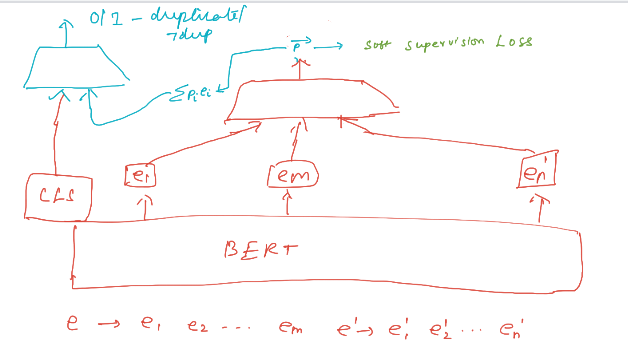 0/1 - duplicate/
¬dup
p⃗ → soft supervision Loss
Σpᵢeᵢ
CLS
e₁
em
en'
BERT
e → e₁ e₂ ... em e' → e₁' e₂' ... en'